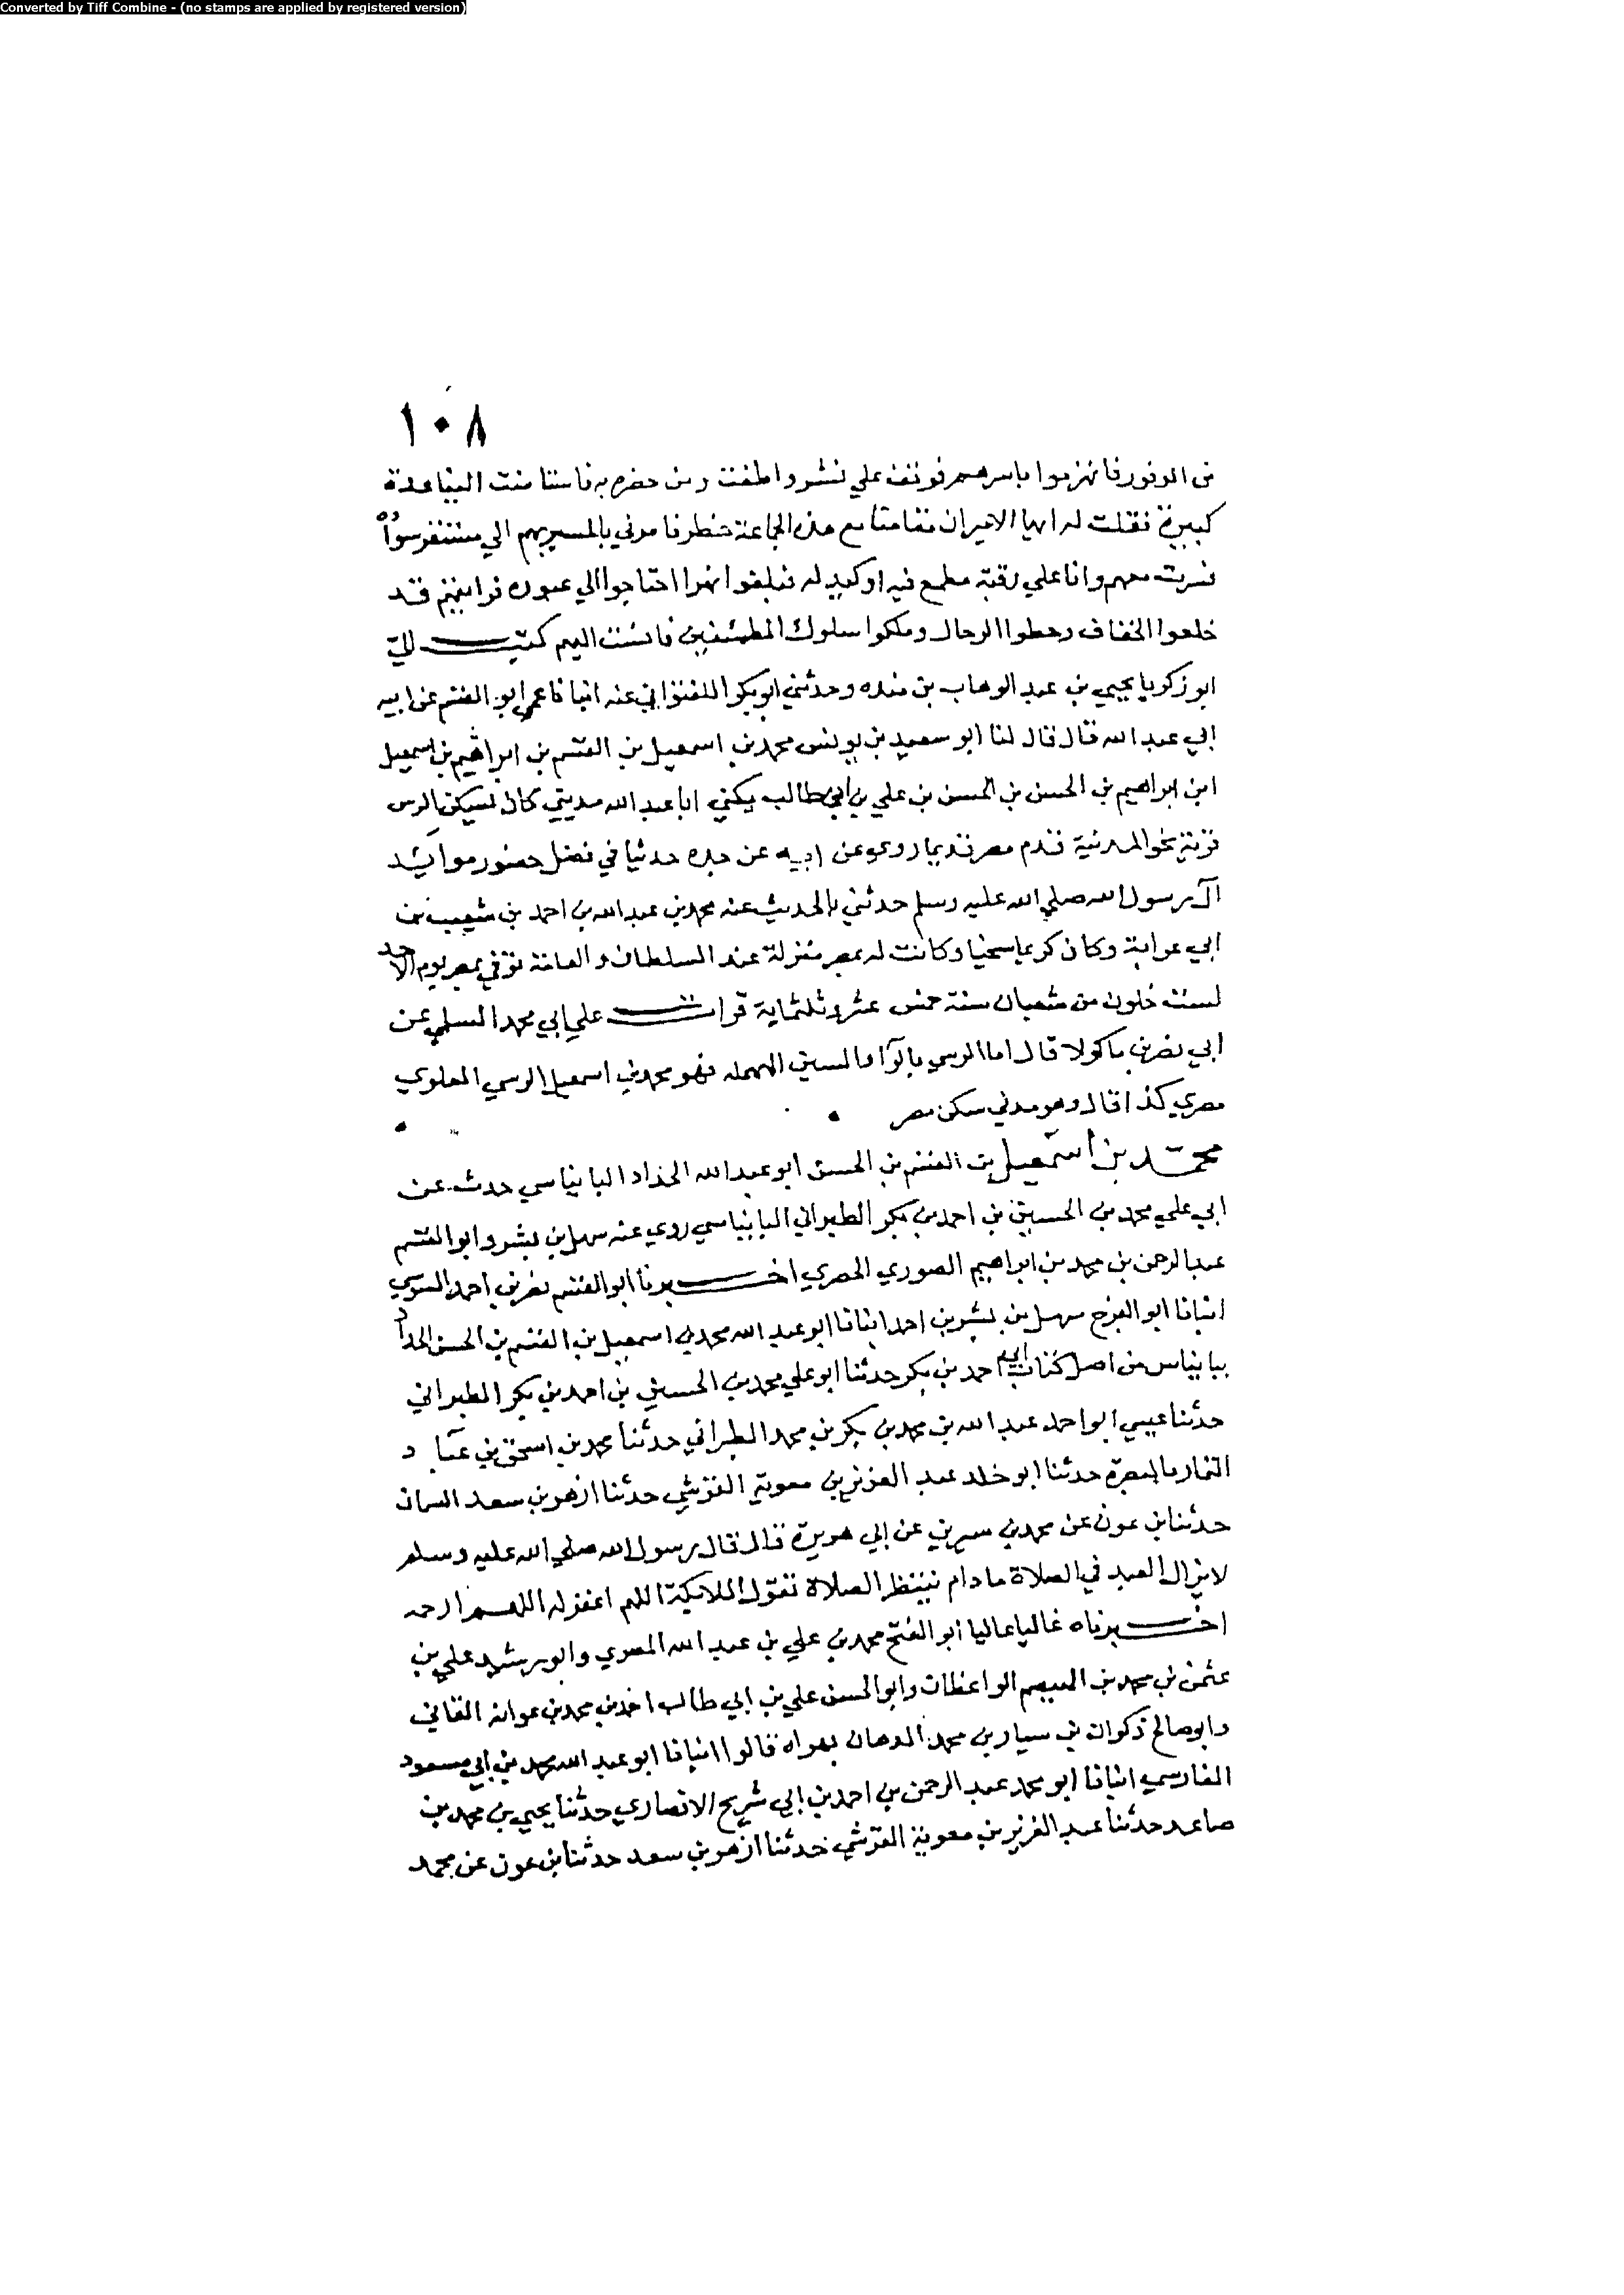 Converted by Tiff Combine - (no stamps are applied by registered version)
١٠٨
من الوفور فانهزموا باسرهم فوقف علي نشر واطفت ومن حضر به فاستامنت البنا عدة
كبيرة فقلت له ايها الامير ان مقامنا مع هذه الجماعة خطر فامرني بالمسير بهم الي
فسرت معهم وانا علي رقبة مطمع فيه او كيد له فبلغوا نهرا احتاجوا الي عبوره فرايتهم قد
خلعوا الخفاف وحطوا الرحال وملكوا سلوك المطمئنين فانست اليهم كتب الي
ابو زكريا يحيي بن عبد الوهاب بن منده وحدثني ابو بكر اللفتواني عنه انبانا عمي ابو القسم عن ابيه
ابي عبد الله قال قال لنا ابو سعيد بن يونس محمد بن اسمعيل بن القسم بن ابراهيم بن اسمعيل
ابن ابراهيم بن الحسن بن الحسن بن علي بن ابي طالب يكني ابا عبد الله مديني كان يسكن الرس
قرية نحو المدينة قدم مصر قديما روي عن ابيه عن جده حدثنا في فضل حضور موايد
آل رسول الله صلي الله عليه وسلم حدثني بالحديث عنه محمد بن عبد الله بن احمد بن شعيب بن
ابي عوانة وكان كريما سخيا وكانت له بمصر منزلة عند السلطان والعامة توفي بمصر يوم الاحد
لست خلون من شعبان سنة خمس عشر وثلثماية قرات علي ابي محمد السلمي عن
ابي نصر بن ماكولا قال اما الرسي بالرا والسين المهمله فهو محمد بن اسمعيل الرسي العلوي
مصري كذا قال وهو مدني سكن مصر
محمد بن اسمعيل بن القسم بن الحسن ابو عبد الله الحداد البانياسي حدث عن
ابي علي محمد بن الحسين بن احمد بن بكر الطبراني البانياسي روي عنه سهل بن بشر وابو القسم
عبد الرحمن بن محمد بن ابراهيم الصوري الحصري اخبرنا ابو القسم نصر بن احمد السوسي
انبانا ابو الفرج سهل بن بشر بن احمد انبانا ابو عبد الله محمد بن اسمعيل بن القسم بن الحسن الحداد
ببانياس من اصل كتاب ابي احمد بن بكر حدثنا ابو علي محمد بن الحسين بن احمد بن بكر الطبراني
حدثنا عمي ابو احمد عبد الله بن محمد بن بكر بن محمد الطبراني حدثنا محمد بن اسحق بن عباد
التمار بالبصرة حدثنا ابو خلد عبد العزيز بن معوية القرشي حدثنا ازهر بن سعد السمان
حدثنا بن عون عن محمد بن سيرين عن ابي هريرة قال قال رسول الله صلي الله عليه وسلم
لا يزال العبد في الصلاة ما دام ينتظر الصلاة تقول الملايكة اللهم اغفر له اللهم ارحمه
اخبرناه غاليا عاليا ابو الفتح محمد بن علي بن عبد الله المصري وابو رشيد علي بن
عثمن بن محمد بن الهيصم الواعظان وابو الحسن علي بن ابي طالب احمد بن محمد بن عوانه القاني
وابو صالح ذكوان بن سيار بن محمد الدهان بهراه قالوا انبانا ابو عبد الله محمد بن ابي مسعود
الفارسي انبانا ابو محمد عبد الرحمن بن احمد بن ابي شريح الانصاري حدثنا يحيي بن محمد بن
صاعد حدثنا عبد العزيز بن معوية القرشي حدثنا ازهر بن سعد حدثنا بن عون عن محمد